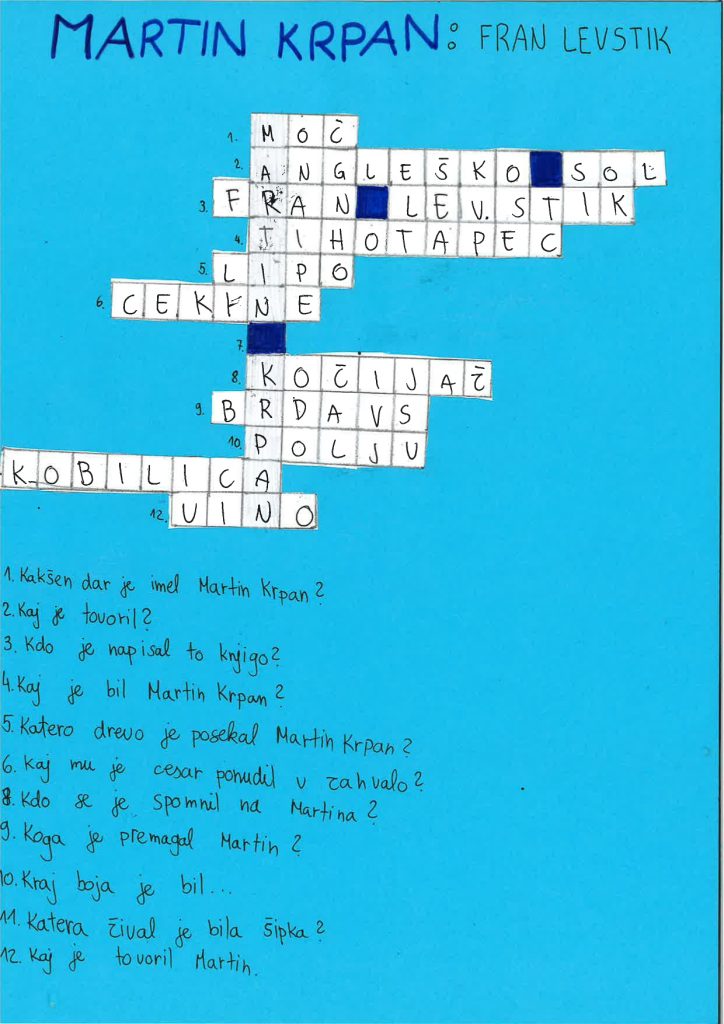 MARTIN KRPAN: FRAN LEVSTIK
1. MOČ
2. ANGLEŠKO SOL
3. FRAN LEVSTIK
4. TIHOTAPEC
5. LIPO
6. CEKINE
7.
8. KOČIJAŽ
9. BRDAVS
10. POLJU
KOBILICA
12. VINO
1. Kakšen dar je imel Martin Krpan?
2. Kaj je tovoril?
3. Kdo je napisal to knjigo?
4. Kaj je bil Martin Krpan?
5. Katero drevo je posekal Martin Krpan?
6. Kaj mu je cesar ponudil v zahvalo?
8. Kdo se je spomnil na Martina?
9. Koga je premagal Martin?
10. Kraj boja je bil...
11. Katera žival je bila šipka?
12. Kaj je tovoril Martin.